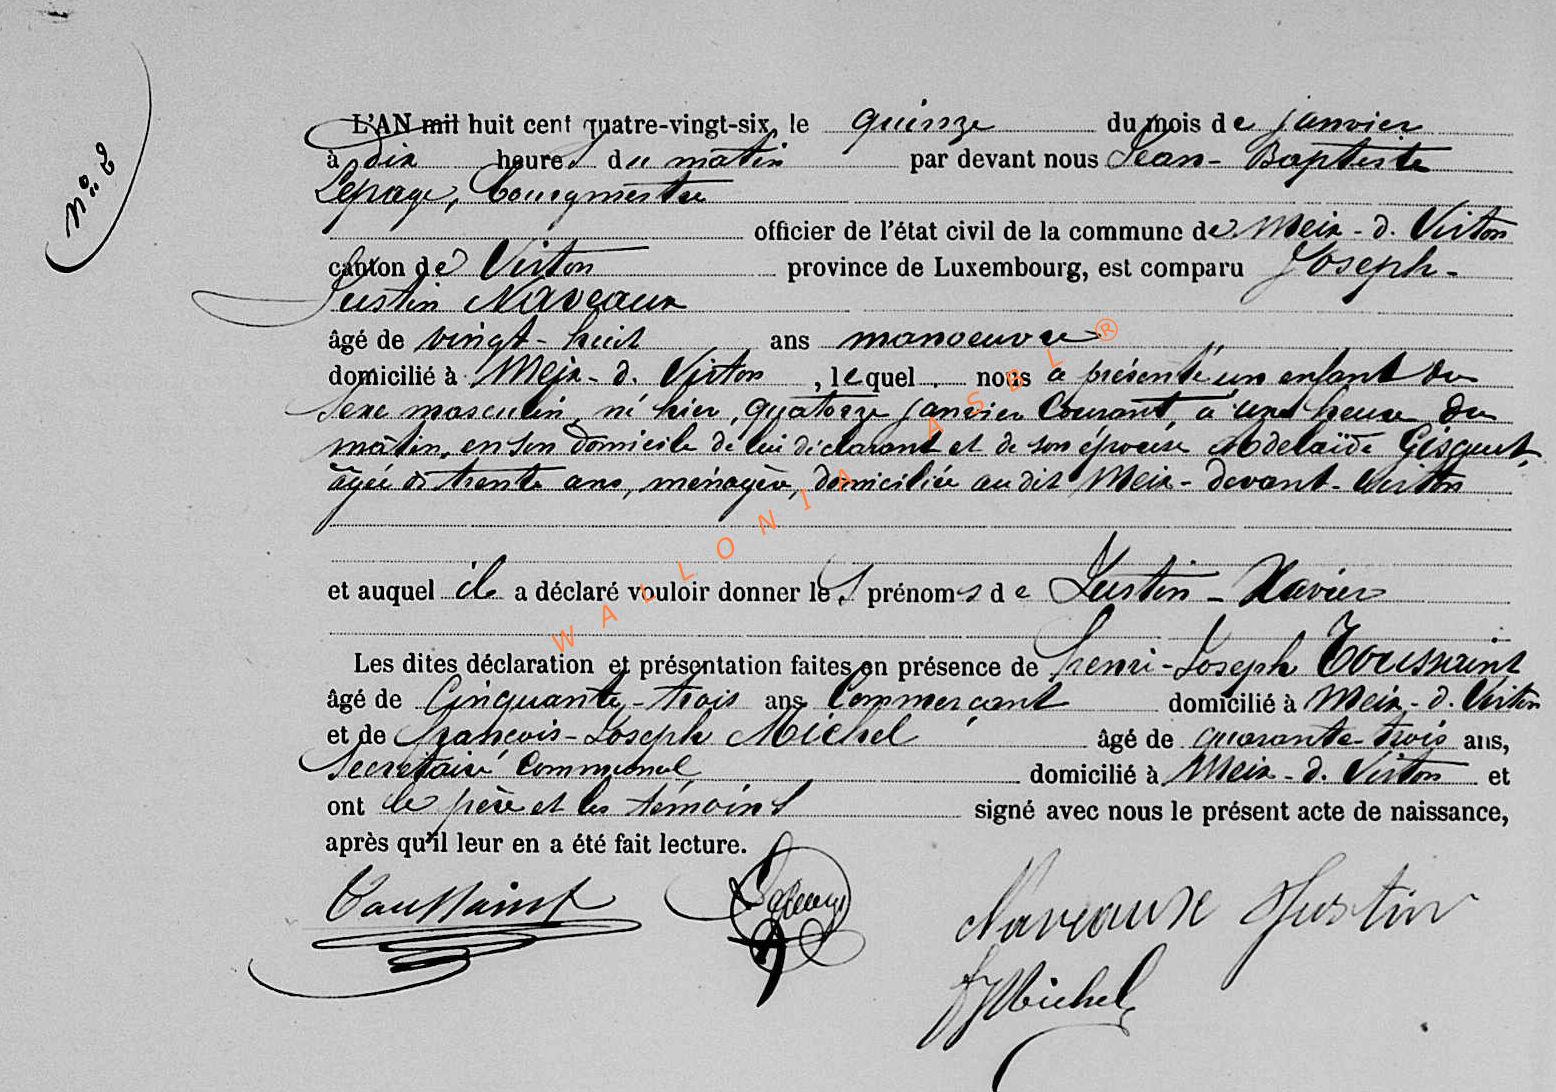 N° 2
L'AN mil huit cent quatre-vingt-six, le quinze du mois de janvier
à dix heures du matin par devant nous Jean-Baptiste
Lepage, bourgmestre
officier de l'état civil de la commune de Meix-d. Virton
canton de Virton province de Luxembourg, est comparu Joseph-
Justin Naveaux
âgé de vingt-huit ans manoeuvre
domicilié à Meix-d. Virton, lequel nous a présenté un enfant du
sexe masculin, né hier, quatorze janvier courant à une heure du
matin, en son domicile de lui déclarant et de son épouse Adelaïde Gisquet,
âgée de trente ans, ménagère, domiciliée au dit Meix-devant-Virton
et auquel il a déclaré vouloir donner les prénoms de Justin-Xavier
Les dites déclaration et présentation faites en présence de Henri-Joseph Toussaint
âgé de cinquante-trois ans commerçant domicilié à Meix-d. Virton
et de François-Joseph Michel âgé de quarante-trois ans,
Secrétaire Communal domicilié à Meix-d. Virton et
ont le père et les témoins signé avec nous le présent acte de naissance,
après qu'il leur en a été fait lecture.
Toussaint Lepage Naveaux Justin
fJMichel
WALLONIA ASBL ®